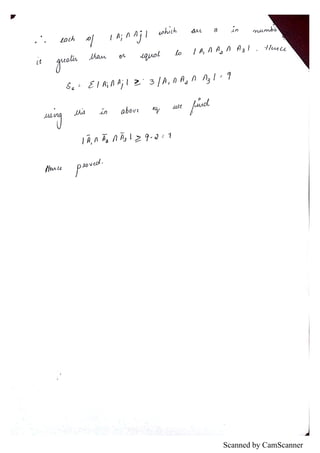 ∴ each of |Ai ∩ Aj| which are 3 in numbe
is greater than or equal to |A₁ ∩ A₂ ∩ A₃|. Hence
S₂ = Σ|Ai ∩ Aj| ≥ 3|A₁ ∩ A₂ ∩ A₃| = 9
using this in above eq we find
|Ā₁ ∩ Ā₂ ∩ Ā₃| ≥ 9-2 = 7
Hence proved.
Scanned by CamScanner